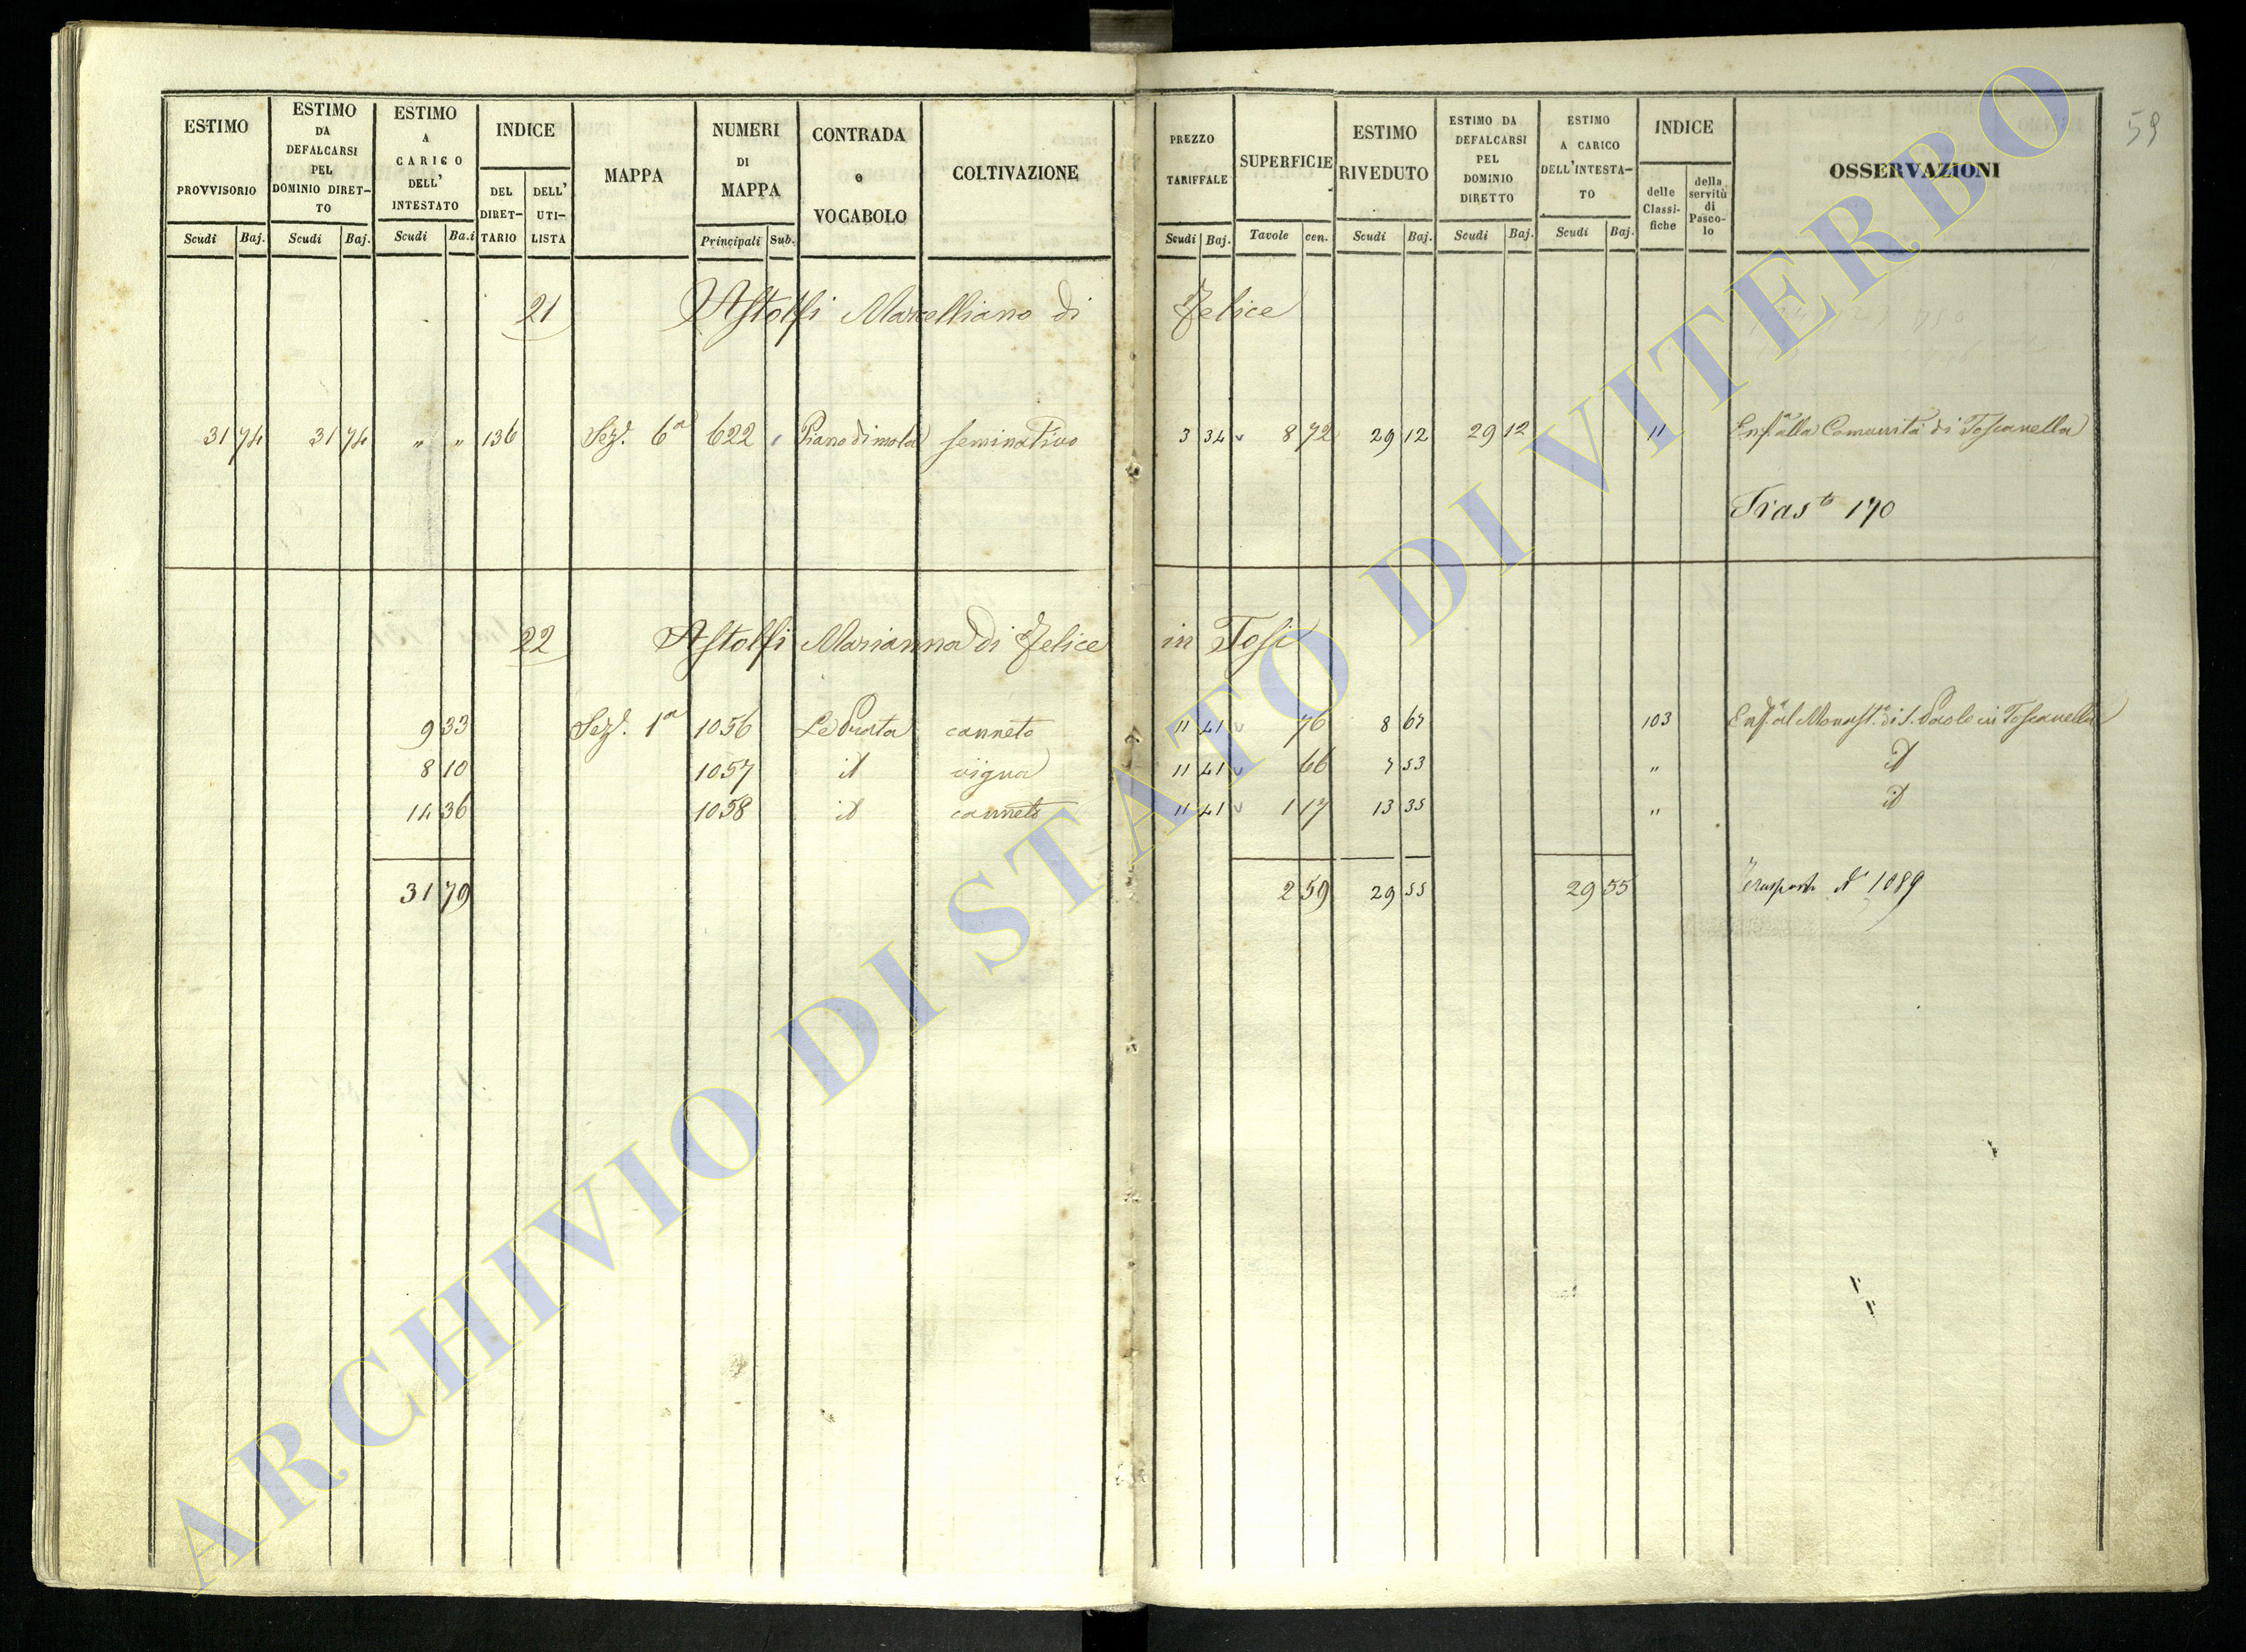 59
ESTIMO PROVVISORIO Scudi Baj.
ESTIMO DA DEFALCARSI PEL DOMINIO DIRET-TO Scudi Baj.
ESTIMO A CARICO DELL' INTESTATO Scudi Ba.i
INDICE DEL DIRET-TARIO DELL' UTI-LISTA
MAPPA
NUMERI DI MAPPA Principali Sub.
CONTRADA e VOCABOLO
COLTIVAZIONE
PREZZO TARIFFALE Scudi Baj.
SUPERFICIE Tavole cen.
ESTIMO RIVEDUTO Scudi Baj.
ESTIMO DA DEFALCARSI PEL DOMINIO DIRETTO Scudi Baj.
ESTIMO A CARICO DELL'INTESTA-TO Scudi Baj.
INDICE delle Classi-fiche della servitù di Pasco-lo
OSSERVAZIONI
21 Astolfi Marcelliano di Felice
31 74 31 74 " " 136 Sez.e 6a 622 Piano di mola seminativo 3 34 8 72 29 12 29 12 11 Enf.a alla Comunità di Toscanella
Tras.to 170
22 Astolfi Marianna di Felice in Tosi
9 33 Sez.e 1a 1056 canneto 11 41 76 8 67 103 Enf.a al Monast.o di S. Paolo in Toscanella
8 10 1057 id vigna 11 41 66 7 53 " id
14 36 1058 id canneto 11 41 1 17 13 35 " id
31 79 2 59 29 55 29 55 Trasporto N° 1089
ARCHIVIO DI STATO DI VITERBO